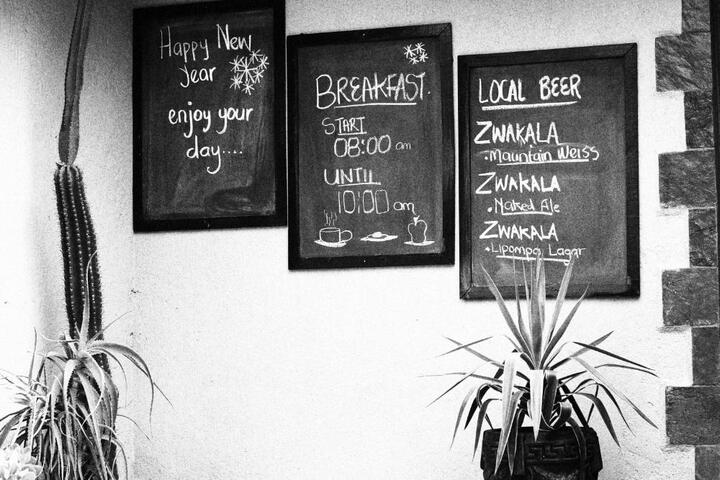 Happy New
Year
enjoy your
day....
BREAKFAST.
START
08:00 am
UNTIL
10:00 am
LOCAL BEER
ZWAKALA
• Mauntain Weiss
ZWAKALA
• Naked Ale
ZWAKALA
• Lipompo Lagar